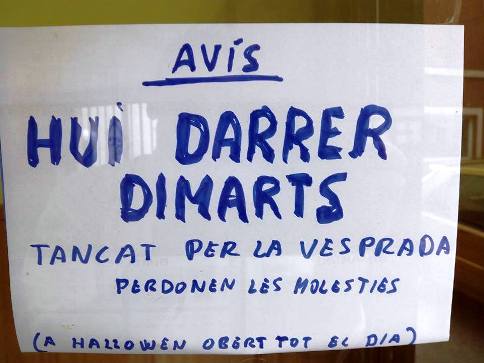 AVÍS
HUÍ DARRER
DIMARTS
TANCAT PER LA VESPRADA
PERDONEN LES MOLESTIES
(A HALLOWEN OBERT TOT EL DIA)